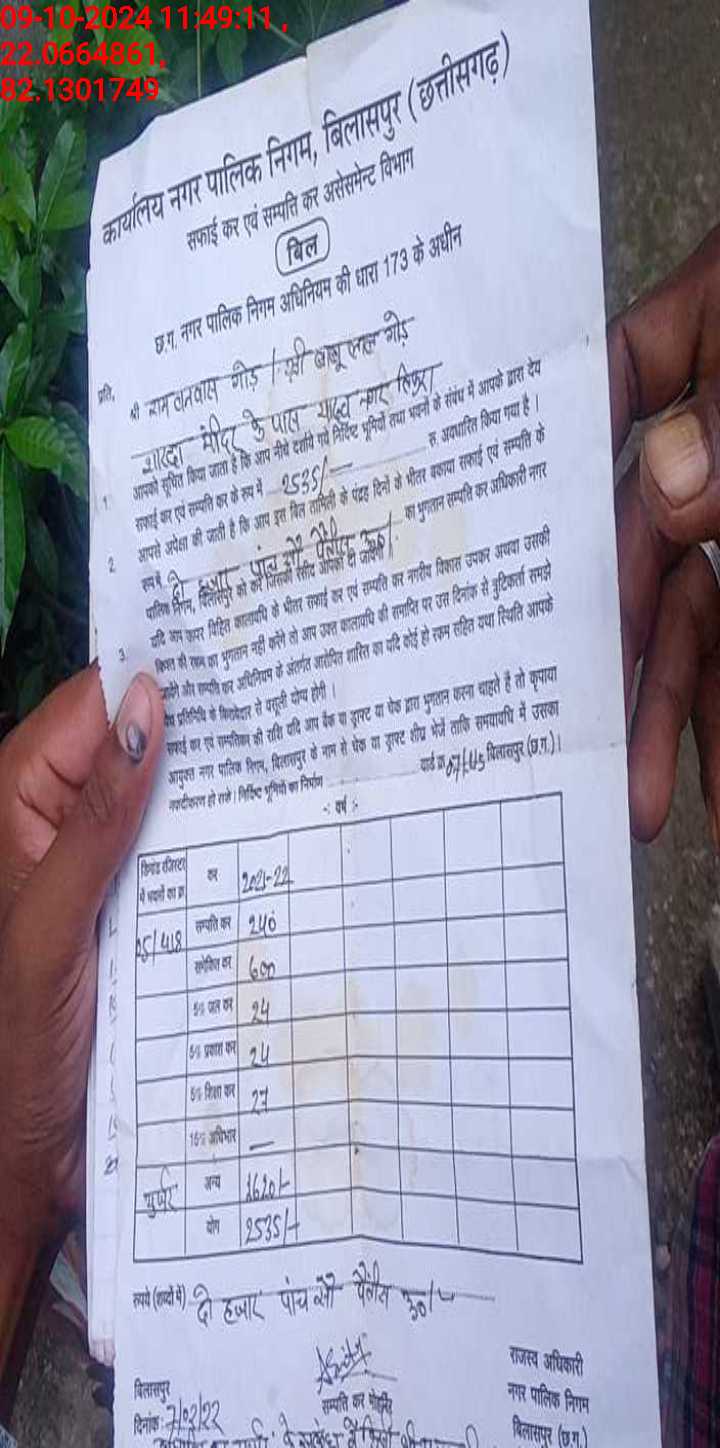 09-10-2024 11:49:11 ,
22.0664861,
82.1301749
कार्यालय नगर पालिक निगम, बिलासपुर (छत्तीसगढ़)
सफाई कर एवं सम्पत्ति कर असेसमेन्ट विभाग
बिल
छ.ग. नगर पालिक निगम अधिनियम की धारा 173 के अधीन
प्रति,
श्री राम वनवास गोड़ / श्री बाबू लाल गोड़
शारदा मंदिर के पास यादव नगर
1. आपको सूचित किया जाता है कि आप नीचे दर्शाये गये निर्दिष्ट भूमियों तथा भवनों के संबंध में आपके द्वारा देय
सफाई कर एवं सम्पत्ति कर के रूप में 2535/- रु. अवधारित किया गया है।
2 आपसे अपेक्षा की जाती है कि आप इस बिल तामिली के पंद्रह दिनों के भीतर बकाया सफाई एवं सम्पत्ति कर
रूपये दो हजार पांच सौ पैंतीस रू०/- का भुगतान सम्पत्ति कर अधिकारी नगर
पालिक निगम, बिलासपुर को करें जिसकी रसीद आपको दी जावेगी
3. यदि आप ऊपर विहित कालावधि के भीतर सफाई कर एवं सम्पत्ति कर नगरीय विकास उपकर अथवा उसकी
किश्त की रकम का भुगतान नही करेंगे तो आप उक्त कालावधि की समाप्ति पर उस दिनांक से त्रुटिकर्ता समझे
जायेंगे और सम्पत्ति कर अधिनियम के अंतर्गत आरोपित शास्ति का यदि कोई हो रकम सहित यथा स्थिति आपके
प्रतिनिधि के किरायेदार से वसूली योग्य होगी।
सफाई कर एवं सम्पत्तिकर की राशि यदि आप बैंक या ड्राफ्ट या चेक द्वारा भुगतान करना चाहते है तो कृपया
आयुक्त नगर पालिक निगम, बिलासपुर के नाम से चेक या ड्राफ्ट शीघ्र भेजें ताकि समयावधि में उसका
नकदीकरण हो सके। निर्दिष्ट भूमियों का निर्माण वार्ड क्र. 07/45 बिलासपुर (छ.ग.)।
-: वर्ष :-
डिमांड रजिस्टर में भवनों का क्र. कर 2021-22
05/418 सम्पत्ति कर 240
समेकित कर 600
5% जल कर 24
5% प्रकाश कर 24
5% शिक्षा कर 27
15% अधिभार —
अन्य 1620/-
योग 2535/-
रुपये (शब्दों में) दो हजार पांच सौ पैंतीस रू०/-
राजस्व अधिकारी
बिलासपुर सम्पत्ति कर मोहर्रिर नगर पालिक निगम
दिनांक: 7/02/22 बिलासपुर (छ.ग.)